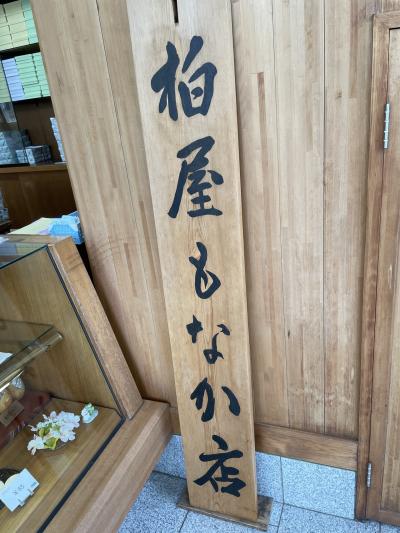 柏屋もなか店